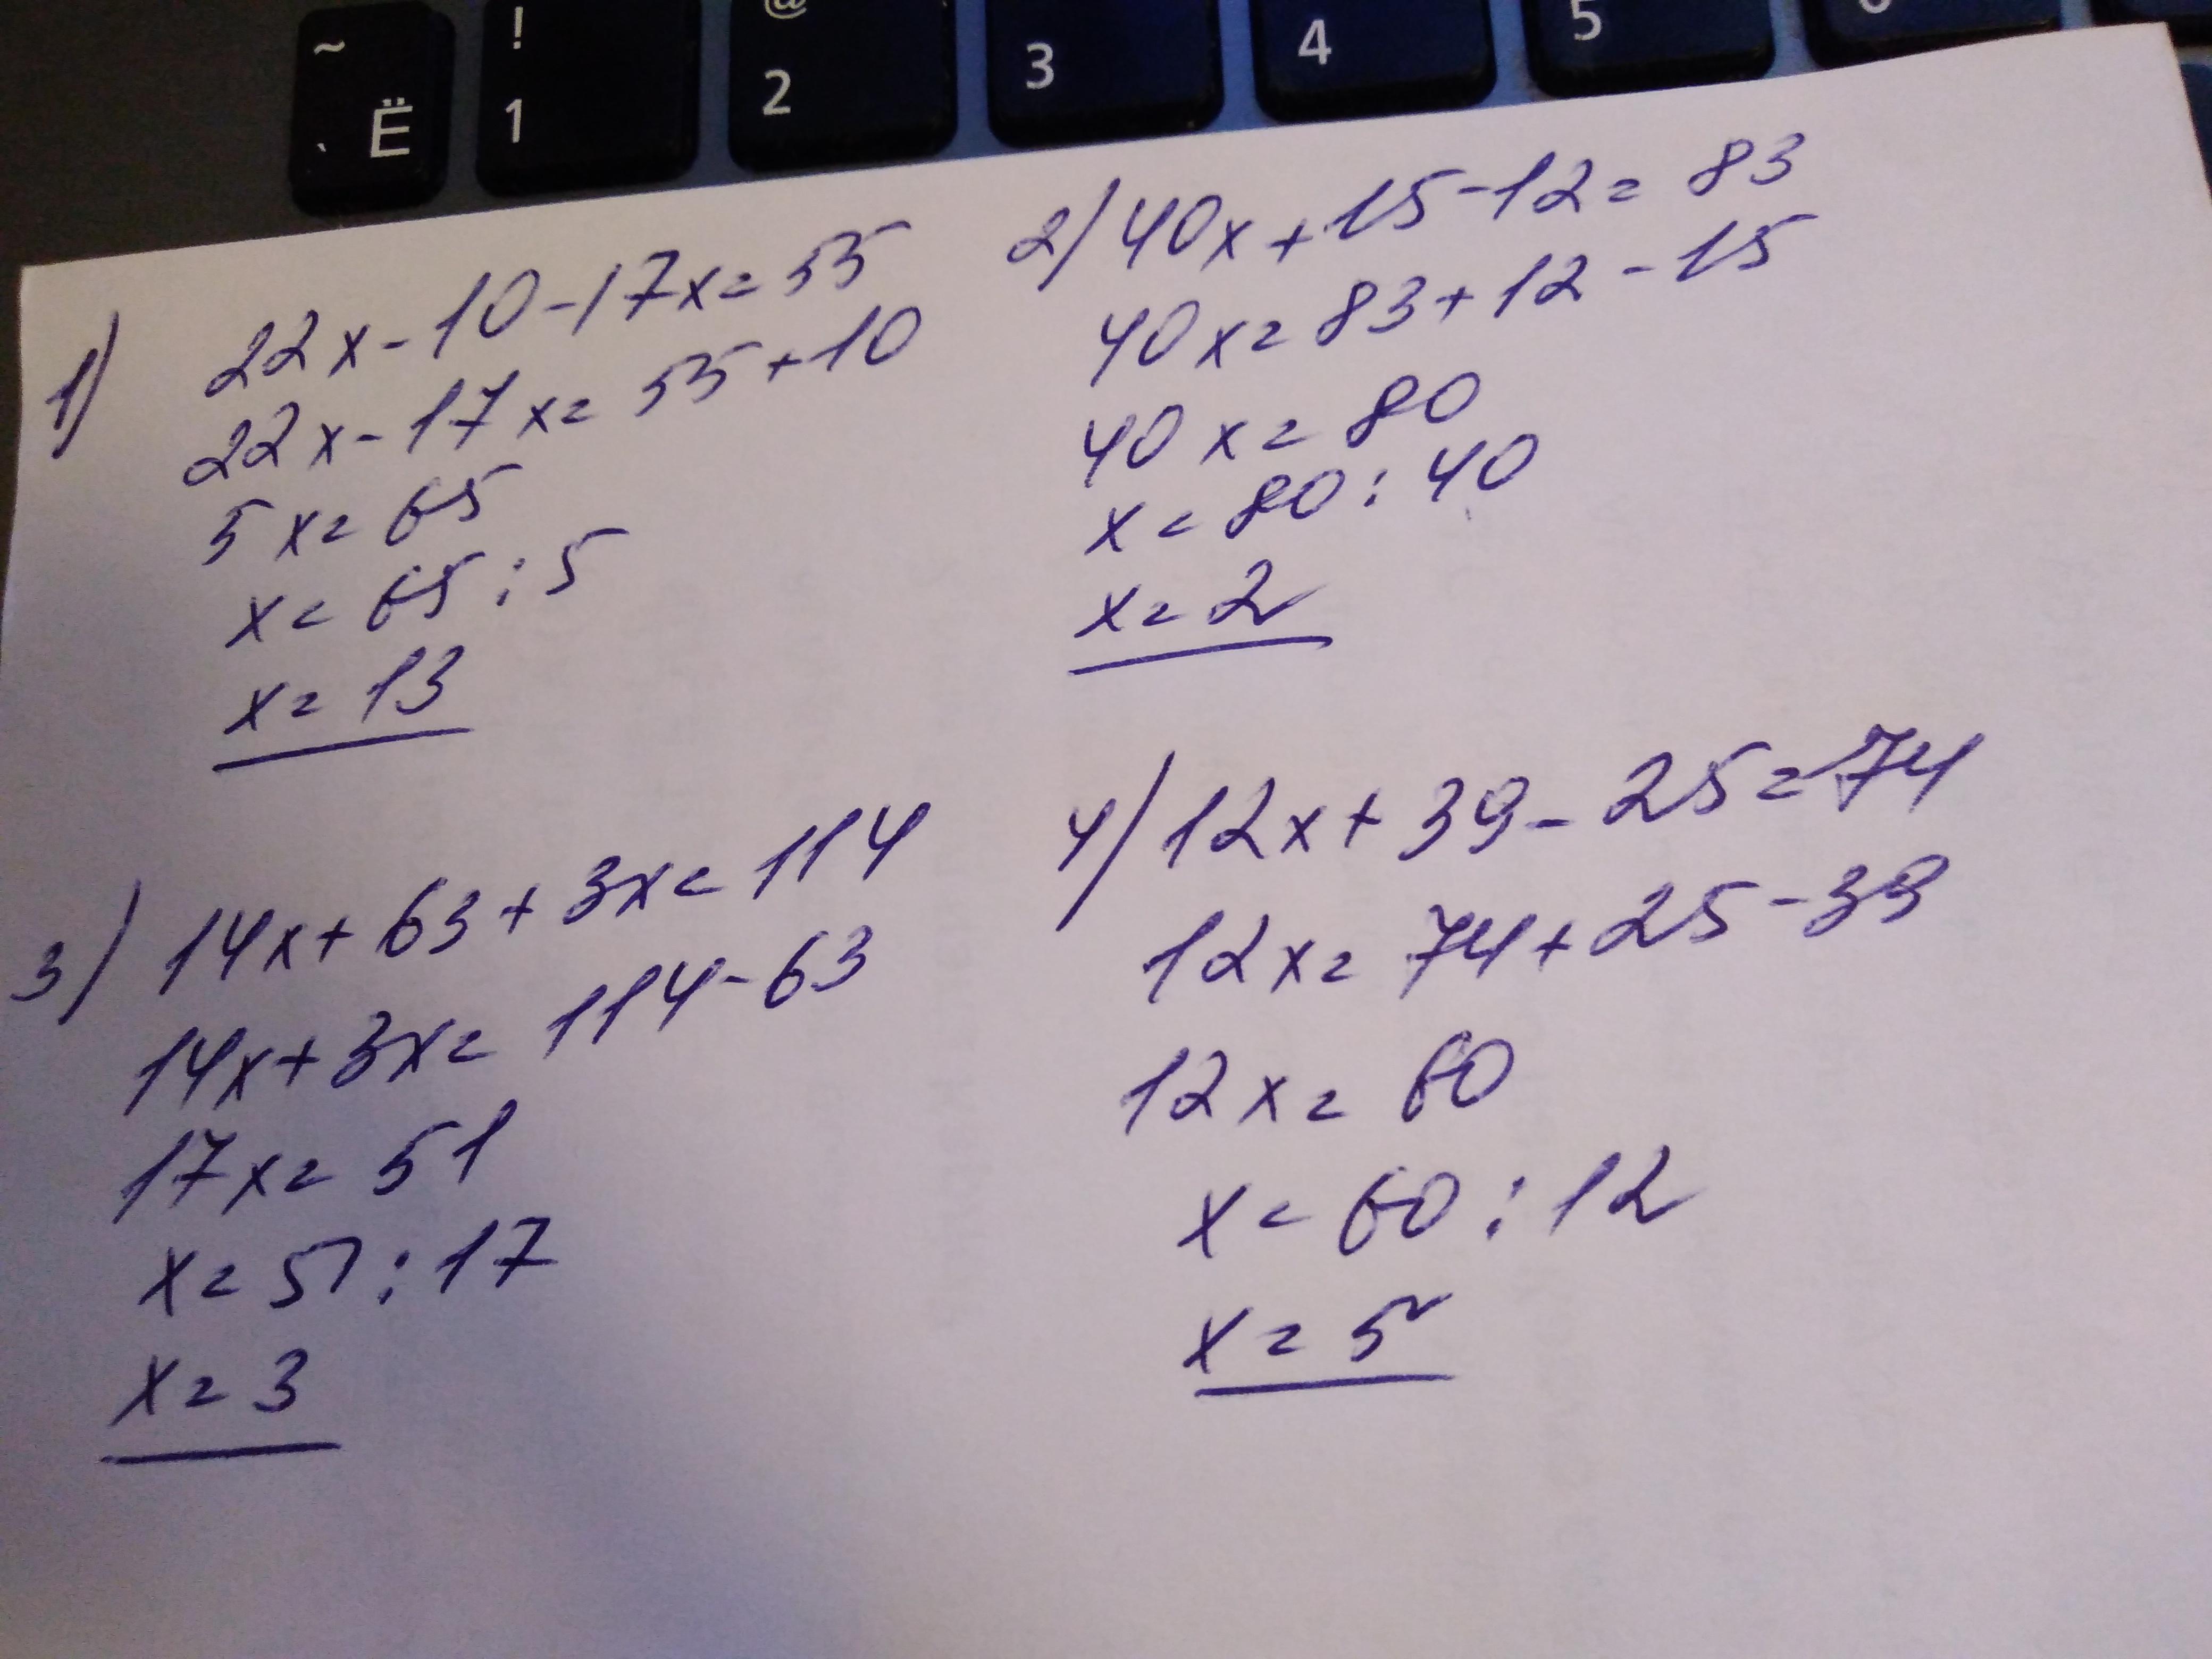 ~ Ё
! 1
@ 2
3
4
5
1) 22x-10-17x=55
22x-17x=55+10
5x=65
x=65:5
x=13
2) 40x+15-12=83
40x=83+12-15
40x=80
x=80:40
x=2
3) 14x+63+3x=114
14x+3x=114-63
17x=51
x=51:17
x=3
4) 12x+39-25=74
12x=74+25-39
12x=60
x=60:12
x=5